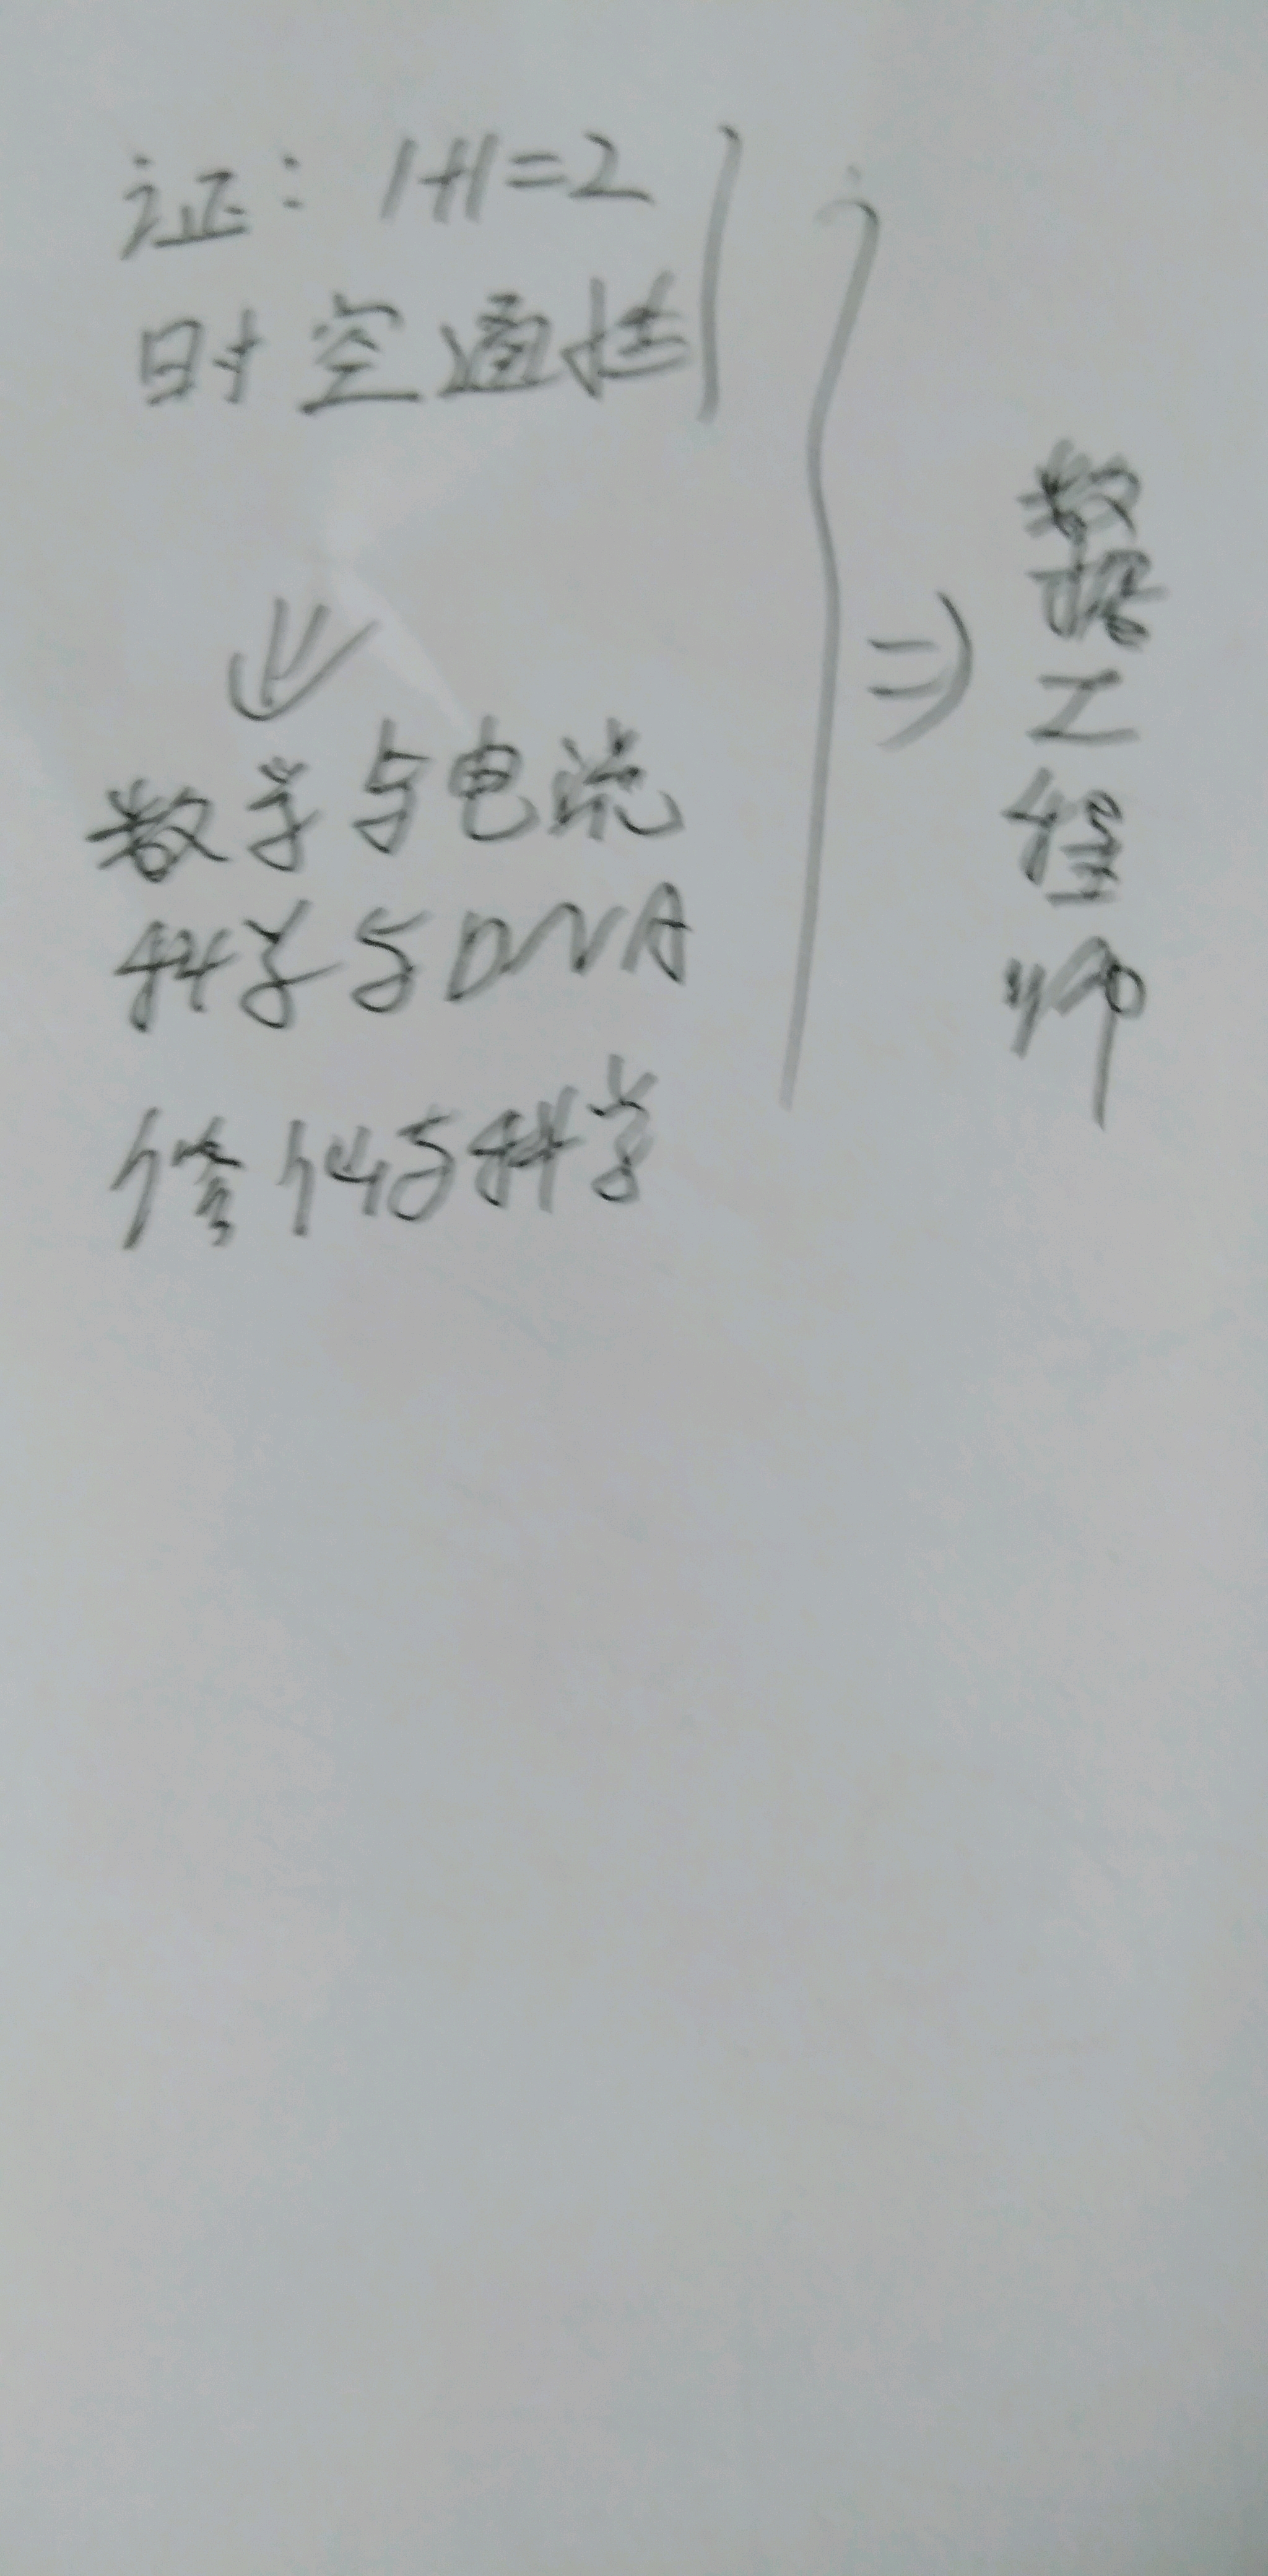 证：1+1=2
时空通道
⇓
数学与电流
科学与DNA
修仙与科学
⇒
数据工程师